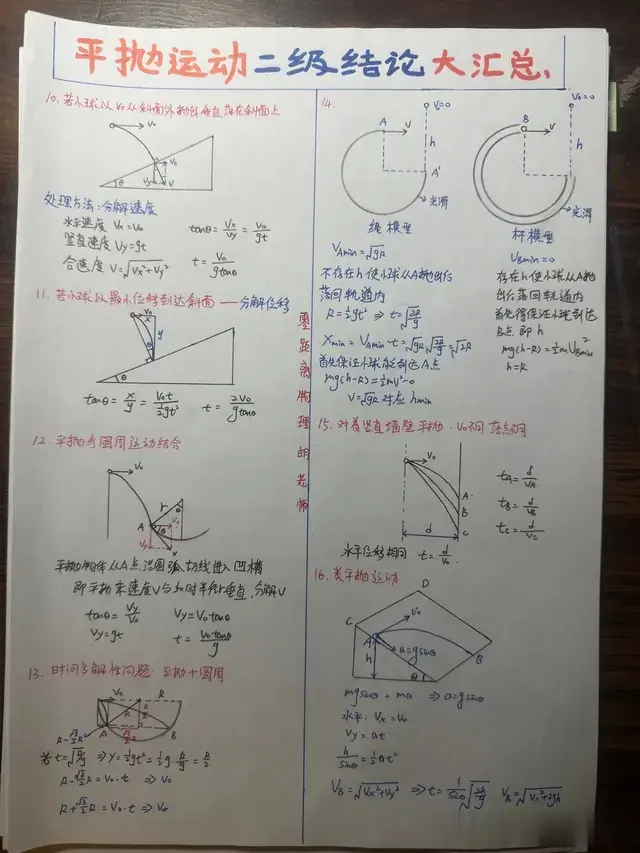 平抛运动二级结论大汇总、
10. 若小球以 V₀ 从斜面外抛出垂直落在斜面上
V₀
θ
处理方法:分解速度
水平速度 Vx=V₀
竖直速度 Vy=gt
合速度 V=√(Vx²+Vy²)
tanθ=Vx/Vy=V₀/gt
t=V₀/(gtanθ)
11. 若小球以最小位移到达斜面——分解位移
V₀
x
y
θ
θ
tanθ=x/y=V₀t/(½gt²)
t=2V₀/(gtanθ)
12. 平抛与圆周运动结合
V₀
r
A
θ
V
平抛物体从A点沿圆弧切线进入凹槽
即平抛末速度V与此时半径r垂直,分解V
tanθ=Vy/V₀
Vy=V₀tanθ
Vy=gt
t=V₀tanθ/g
13. 时间多解性问题:平抛+圆周
V₀
R
R
A
B
R-√3/2R
若t=√(R/g) ⇒ y=½gt²=½g·R/g=R/2
R-√3/2R=V₀·t ⇒ V₀
R+√3/2R=V₀·t ⇒ V₀
零距离物理胡老师
14.
V₀=0
A
V
h
A'
光滑
绳模型
VAmin=√gR
不存在h使小球从A抛出后
落回轨道内
R=½gt² ⇒ t=√(2R/g)
Xmin=VAmin·t=√gR·√(2R/g)=√2R
首先保证小球能到达A点
mg(h-R)=½mV²-0
V=√gR 对应 hmin
V₀=0
B
V
h
光滑
杆模型
VBmin=0
存在h使小球从A抛
出后落回轨道内
首先得保证小球到达
B点即h
mg(h-R)=½mVBmin²
h=R
15. 对着竖直墙壁平抛·V₀不同 落点不同
V₀
A
B
C
d
tA=d/VA
tB=d/VB
tC=d/VC
水平位移相同 t=d/V₀
16. 类平抛运动
D
C
V₀
A
h
a=gsinθ
θ
B
mgsinθ=ma ⇒ a=gsinθ
水平:Vx=V₀
Vy=at
h/sinθ=½at²
VB=√(Vx²+Vy²) ⇒ t=1/sinθ√(2h/g) VB=√(V₀²+2gh)